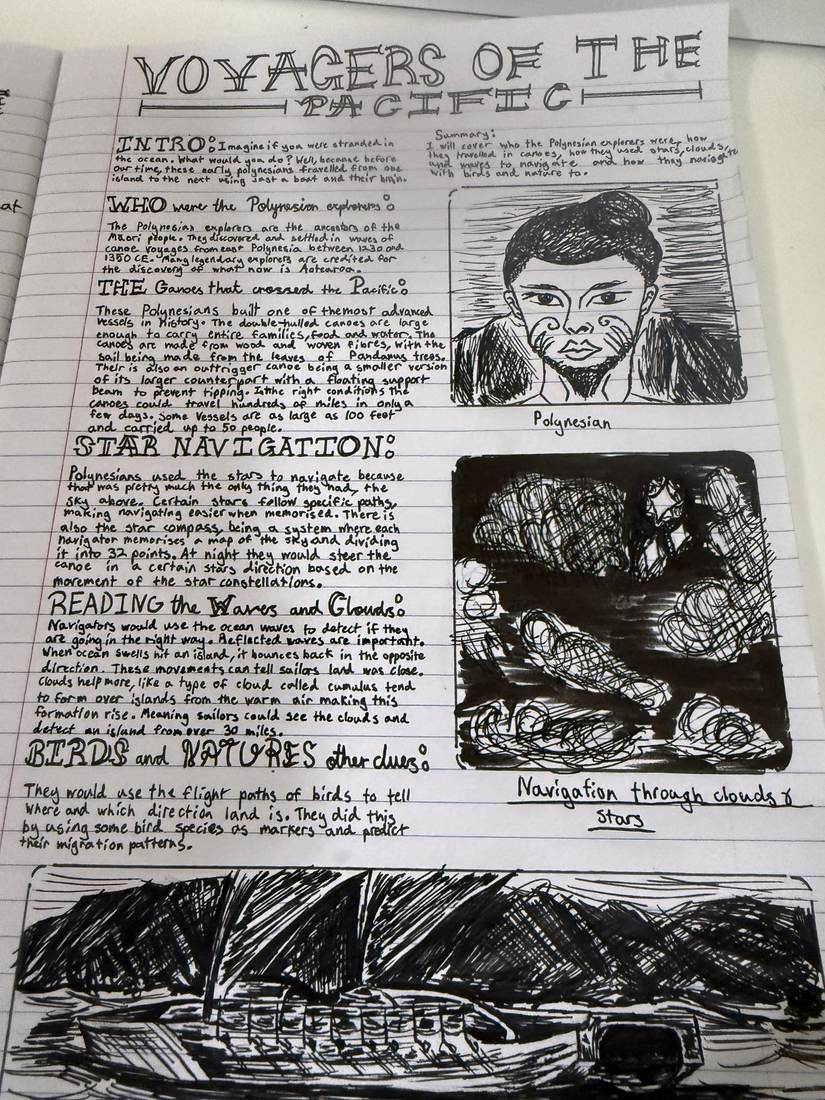 VOYAGERS OF THE
PACIFIC
INTRO: Imagine if you were stranded in
the ocean. What would you do? Well, because before
our time, these early polynesians travelled from one
island to the next using Just a boat and their brain.
Summary:
I will cover who the Polynesian explorers were, how
they travelled in canoes, how they used stars, clouds,
and waves to navigate and how they navigate
with birds and nature to.
WHO were the Polynesian explorers:
The Polynesian explorers are the ancestors of the
Māori people. They discovered and settled in waves of
canoe voyages from east Polynesia between 1230 and
1350 CE. Many legendary explorers are credited for
the discovery of what now is Aotearoa.
THE Canoes that crossed the Pacific:
These Polynesians built one of the most advanced
vessels in History. The double-hulled canoes are large
enough to carry entire families, food and water. The
canoes are made from wood and woven fibres, with the
sail being made from the leaves of Pandanus trees.
Their is also an outtrigger canoe being a smaller version
of its larger counterpart with a floating support
beam to prevent tipping. In the right conditions the
canoes could travel hundreds of miles in only a
few days. Some vessels are as large as 100 feet
and carried up to 50 people.
Polynesian
STAR NAVIGATION:
Polynesians used the stars to navigate because
that was pretty much the only thing they had, the
sky above. Certain stars follow specific paths,
making navigating easier when memorised. There is
also the star compass, being a system where each
navigator memorises a map of the sky and dividing
it into 32 points. At night they would steer the
canoe in a certain stars direction based on the
movement of the star constellations.
READING the Waves and Clouds:
Navigators would use the ocean waves to detect if they
are going in the right way. Reflected waves are important.
When ocean swells hit an island, it bounces back in the opposite
direction. These movements can tell sailors land was close.
Clouds help more, like a type of cloud called cumulus tend
to form over islands from the warm air making this
formation rise. Meaning sailors could see the clouds and
detect an island from over 30 miles.
BIRDS and NATURES other clues:
They would use the flight paths of birds to tell
where and which direction land is. They did this
by using some bird species as markers and predict
their migration patterns.
Navigation through clouds &
stars
at